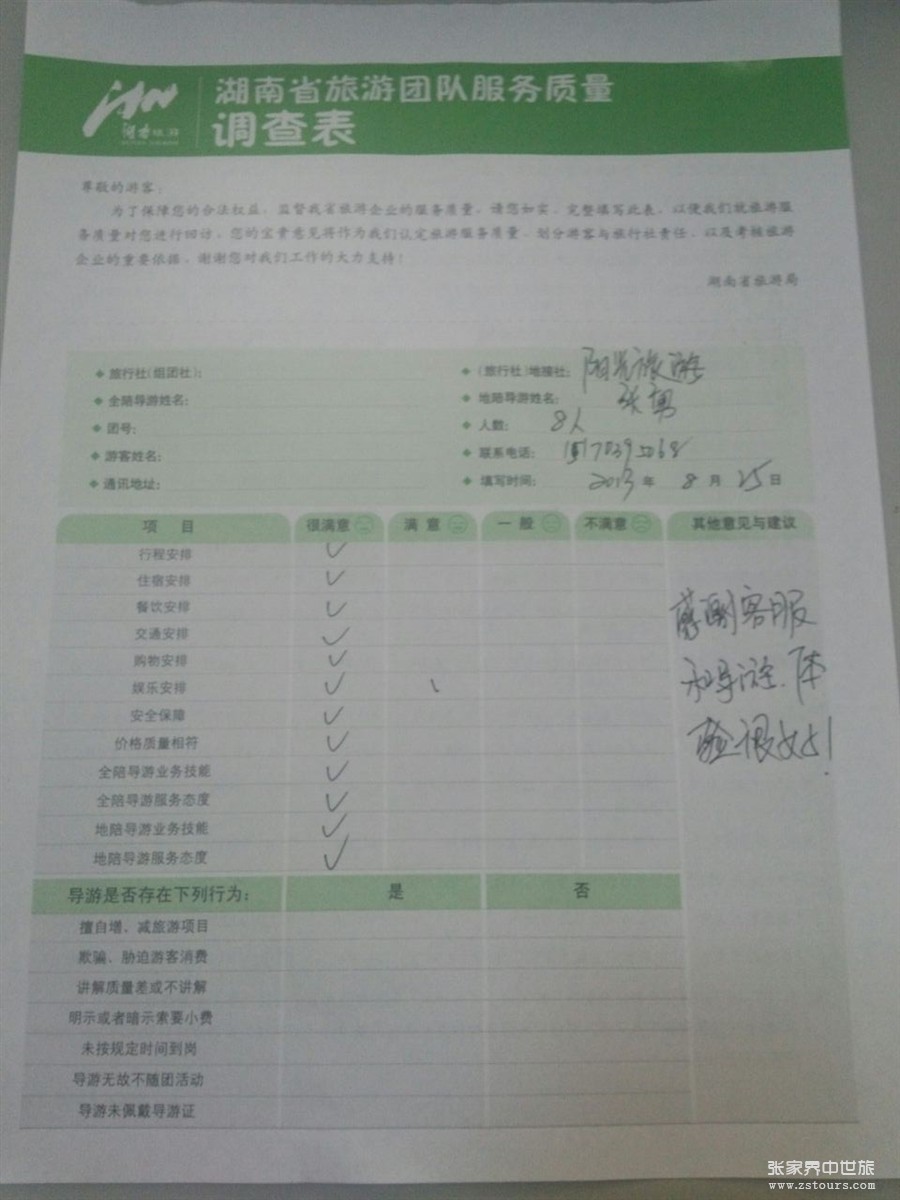 湖南旅游
湖南省旅游团队服务质量
调查表
尊敬的游客：
为了保障您的合法权益，监督我省旅游企业的服务质量，请您如实、完整填写此表，以便我们就旅游服
务质量对您进行回访，您的宝贵意见将作为我们认定旅游服务质量、划分游客与旅行社责任、以及考核旅游
企业的重要依据，谢谢您对我们工作的大力支持！
湖南省旅游局
旅行社(组团社)： (旅行社)地接社： 阳光旅游
全陪导游姓名： 地陪导游姓名： 张勇
团号： 人数： 8人
游客姓名： 联系电话：
通讯地址： 填写时间： 2013 年 8 月 25 日
项 目 很满意 满 意 一 般 不满意 其他意见与建议
行程安排 ✓
住宿安排 ✓
餐饮安排 ✓
交通安排 ✓
购物安排 ✓
娱乐安排 ✓
安全保障 ✓
价格质量相符 ✓
全陪导游业务技能 ✓
全陪导游服务态度 ✓
地陪导游业务技能 ✓
地陪导游服务态度 ✓
感谢客服
和导游、体
验很好！
导游是否存在下列行为： 是 否
擅自增、减旅游项目
欺骗、胁迫游客消费
讲解质量差或不讲解
明示或者暗示索要小费
未按规定时间到岗
导游无故不随团活动
导游未佩戴导游证
张家界中世旅
www.zstours.com